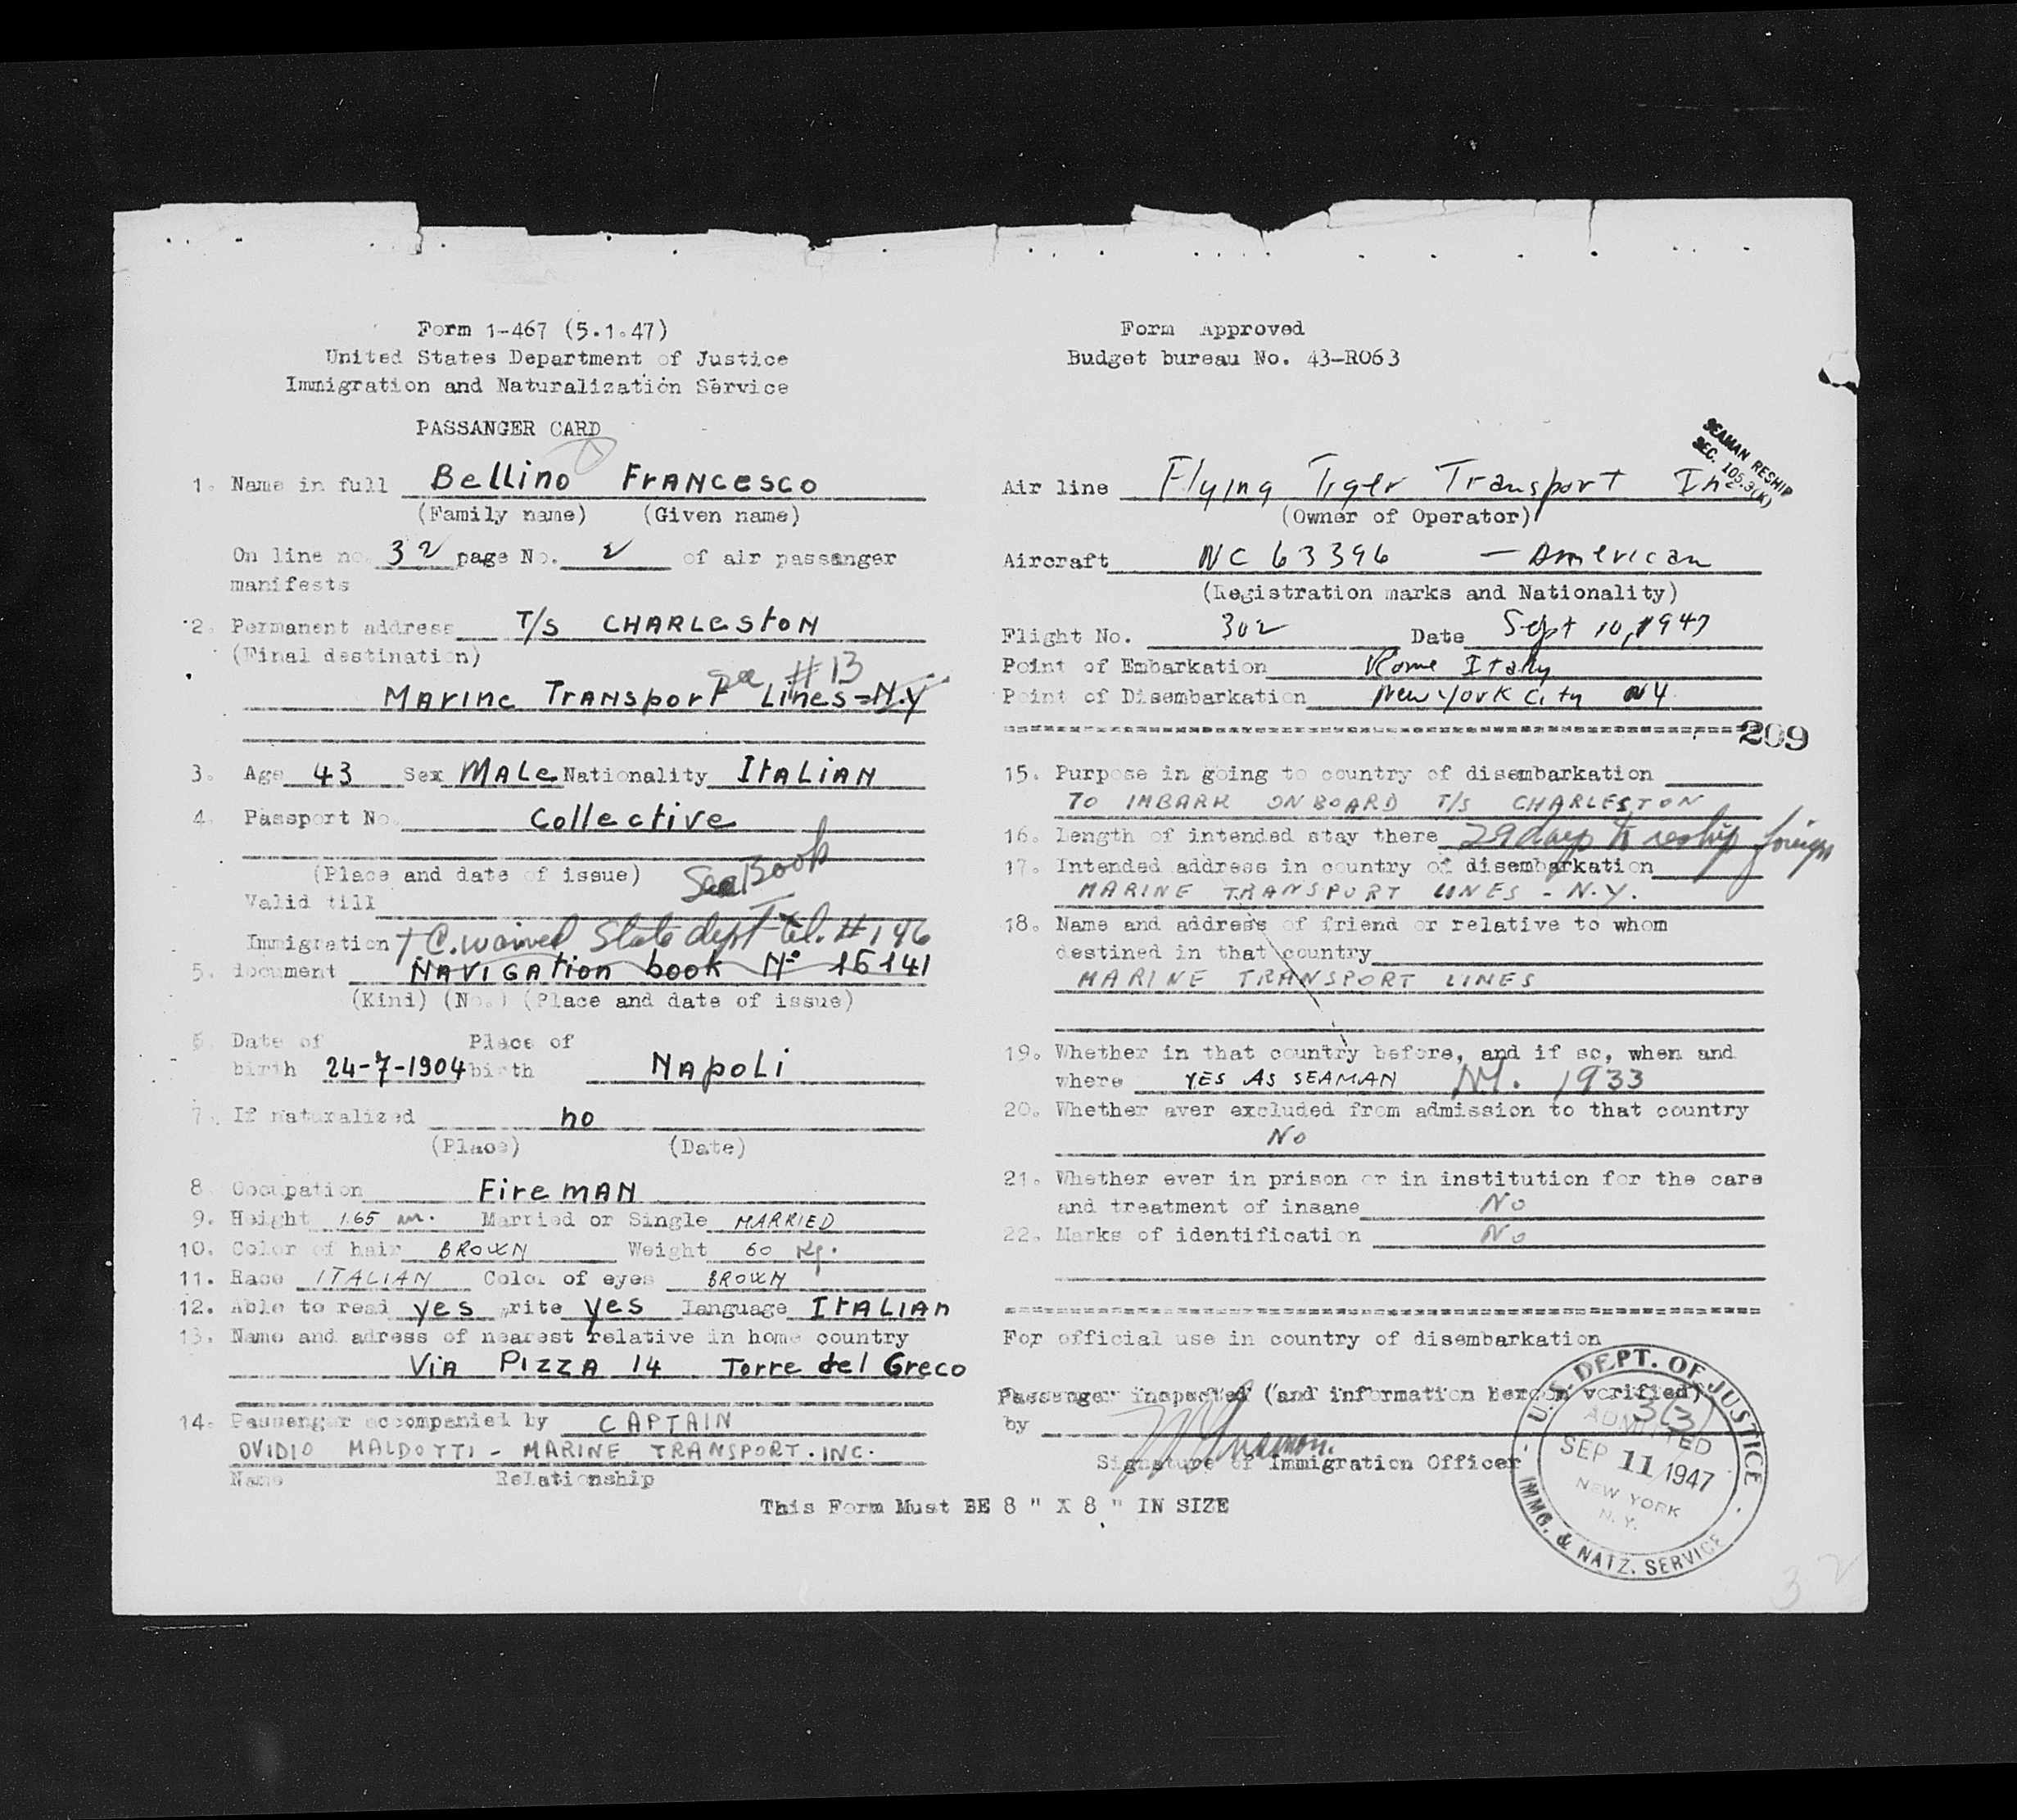 Form 1-467 (5.1.47)
United States Department of Justice
Immigration and Naturalization Service
PASSANGER CARD
1. Name in full Bellino Francesco
(Family name) (Given name)
On line no. 32 page No. 2 of air passanger
manifests
2. Permanent address T/S CHARLESTON
(Final destination)
see #13
Marine Transport Lines = N.Y
3. Age 43 Sex Male Nationality Italian
4. Passport No. Collective
(Place and date of issue) Sea Book
Valid till
Immigration C. waived State dept Tel. # 146
5. document Navigation book N° 16141
(Kind) (No.) (Place and date of issue)
6. Date of Place of
birth 24-7-1904 birth Napoli
7. If naturalized no
(Place) (Date)
8. Occupation Fireman
9. Height 1.65 m. Married or Single MARRIED
10. Color of hair BROWN Weight 60 Kg.
11. Race ITALIAN Color of eyes BROWN
12. Able to read yes write yes Language Italian
13. Name and adress of nearest relative in home country
Via Pizza 14 Torre del Greco
14. Passenger accompanied by CAPTAIN
OVIDIO MALDOTTI - MARINE TRANSPORT. INC.
Name Relationship
This Form Must BE 8 " X 8 " IN SIZE
Form Approved
Budget bureau No. 43-R063
SEAMAN RESHIP
SEC. 105.3(K)
Air line Flying Tiger Transport Inc
(Owner of Operator)
Aircraft NC 63396 - American
(Registration marks and Nationality)
Flight No. 302 Date Sept 10, 1947
Point of Embarkation Rome Italy
Point of Disembarkation New York City NY
209
15. Purpose in going to country of disembarkation
TO IMBARK ONBOARD T/S CHARLESTON
16. Length of intended stay there 29 days to reship foreign
17. Intended address in country of disembarkation
MARINE TRANSPORT LINES - N.Y.
18. Name and address of friend or relative to whom
destined in that country
MARINE TRANSPORT LINES
19. Whether in that country before, and if so, when and
where YES AS SEAMAN 1933
20. Whether aver excluded from admission to that country
No
21. Whether ever in prison or in institution for the care
and treatment of insane No
22. Marks of identification No
For official use in country of disembarkation
Passenger inspected (and information hereon verified)
by
Signature of Immigration Officer
U.S. DEPT. OF JUSTICE
3(3)
ADMITTED
SEP 11 1947
NEW YORK
N.Y.
IMMG. & NATZ. SERVICE
32